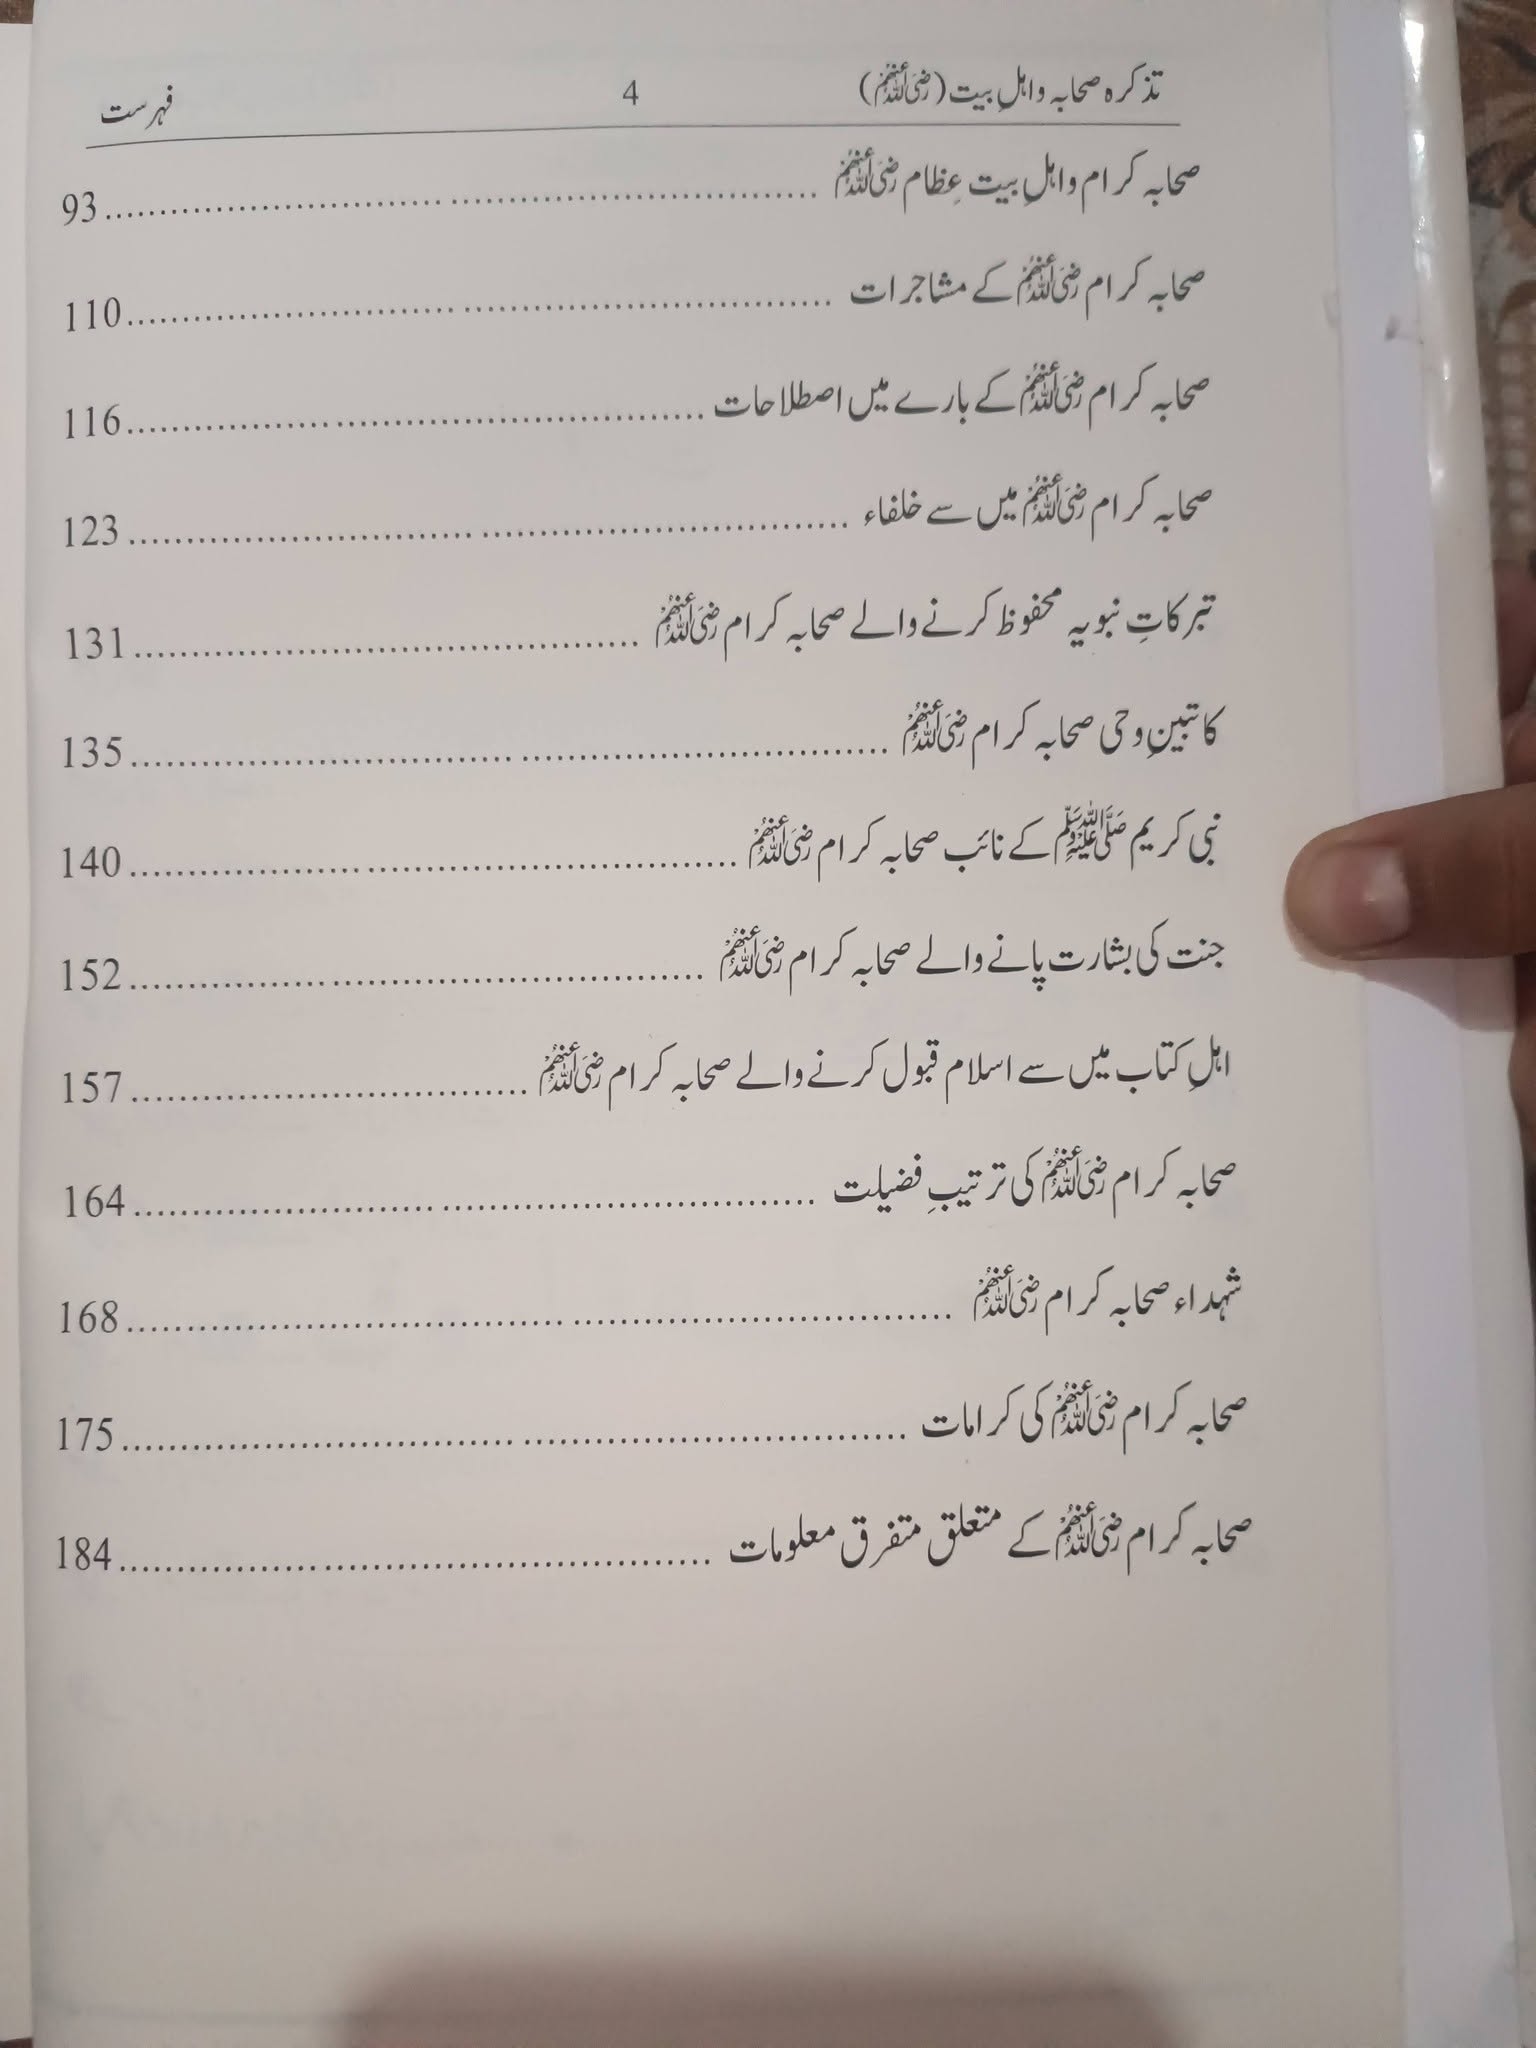 تذکرہ صحابہ و اہلِ بیت (رضی اللہ عنہم) 4 فہرست
صحابہ کرام و اہلِ بیت عِظام رضی اللہ عنہم ........................ 93
صحابہ کرام رضی اللہ عنہم کے مشاجرات ........................ 110
صحابہ کرام رضی اللہ عنہم کے بارے میں اصطلاحات ........................ 116
صحابہ کرام رضی اللہ عنہم میں سے خلفاء ........................ 123
تبرکاتِ نبویہ محفوظ کرنے والے صحابہ کرام رضی اللہ عنہم ........................ 131
کاتبینِ وحی صحابہ کرام رضی اللہ عنہم ........................ 135
نبی کریم صلی اللہ علیہ وسلم کے نائب صحابہ کرام رضی اللہ عنہم ........................ 140
جنت کی بشارت پانے والے صحابہ کرام رضی اللہ عنہم ........................ 152
اہلِ کتاب میں سے اسلام قبول کرنے والے صحابہ کرام رضی اللہ عنہم ........................ 157
صحابہ کرام رضی اللہ عنہم کی ترتیبِ فضیلت ........................ 164
شہداء صحابہ کرام رضی اللہ عنہم ........................ 168
صحابہ کرام رضی اللہ عنہم کی کرامات ........................ 175
صحابہ کرام رضی اللہ عنہم کے متعلق متفرق معلومات ........................ 184